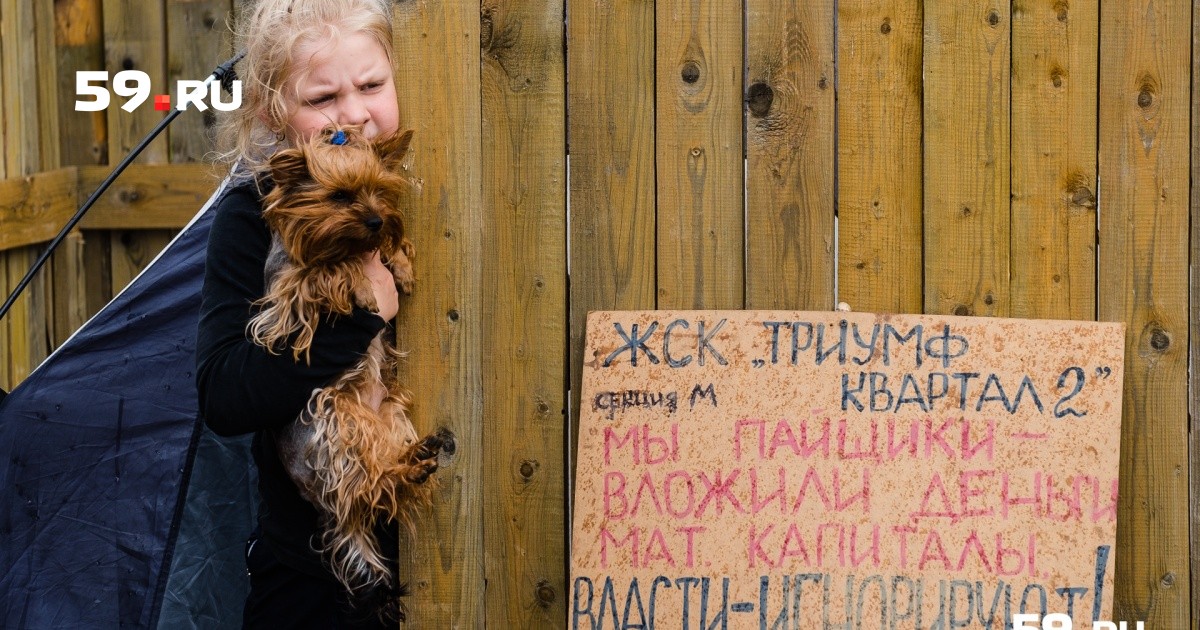 59.RU
ЖСК „ТРИУМФ
КВАРТАЛ 2”
секция М
МЫ ПАЙЩИКИ –
ВЛОЖИЛИ ДЕНЬГИ
МАТ. КАПИТАЛЫ.
ВЛАСТИ-ИГНОРИРУЮТ!
59.RU